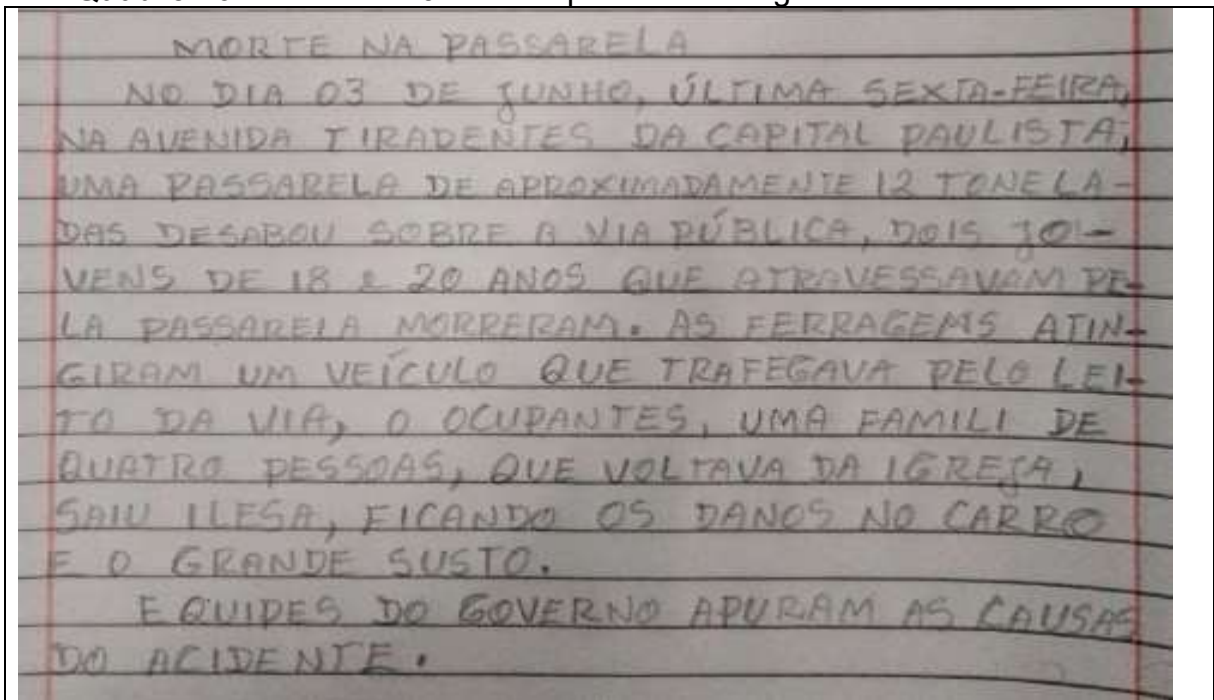 MORTE NA PASSARELA
NO DIA 03 DE JUNHO, ÚLTIMA SEXTA-FEIRA,
NA AVENIDA TIRADENTES DA CAPITAL PAULISTA,
UMA PASSARELA DE APROXIMADAMENTE 12 TONELA-
DAS DESABOU SOBRE A VIA PÚBLICA, DOIS JO-
VENS DE 18 e 20 ANOS QUE ATRAVESSAVAM PE-
LA PASSARELA MORRERAM. AS FERRAGEMS ATIN-
GIRAM UM VEÍCULO QUE TRAFEGAVA PELO LEI-
TO DA VIA, O OCUPANTES, UMA FAMILI DE
QUATRO PESSOAS, QUE VOLTAVA DA IGREJA,
SAIU ILESA, FICANDO OS DANOS NO CARRO
E O GRANDE SUSTO.
EQUIPES DO GOVERNO APURAM AS CAUSAS
DO ACIDENTE.